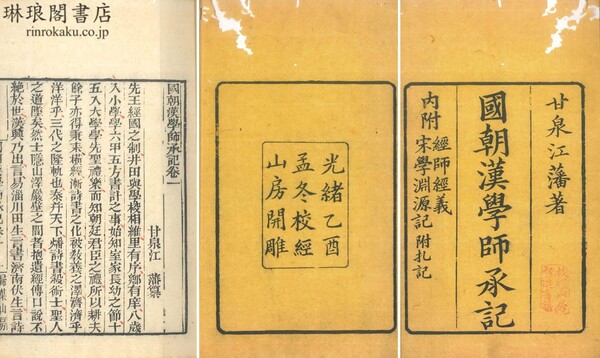 琳琅閣書店
rinrokaku.co.jp
甘泉江藩著
國朝漢學師承記
內附 經師經義
宋學淵源記 附札記
光緒乙酉
孟冬校經
山房開雕
國朝漢學師承記卷一
甘泉江 藩纂
先王經國之制井田與學校相維里有序鄉有庠八歲
入小學學六甲五方書計之事始知室家長幼之節十
五入大學學先聖禮樂而知朝廷君臣之禮所以耕夫
餘子亦得秉耒橫經漸詩書之化被教養之澤濟濟乎
洋洋乎三代之隆軌也秦并天下燔詩書殺術士聖人
之道墜矣然士隱山澤巖壁之間者抱遺經傳口說不
絕於世漢興乃出言易淄川田生言書濟南伏生言詩